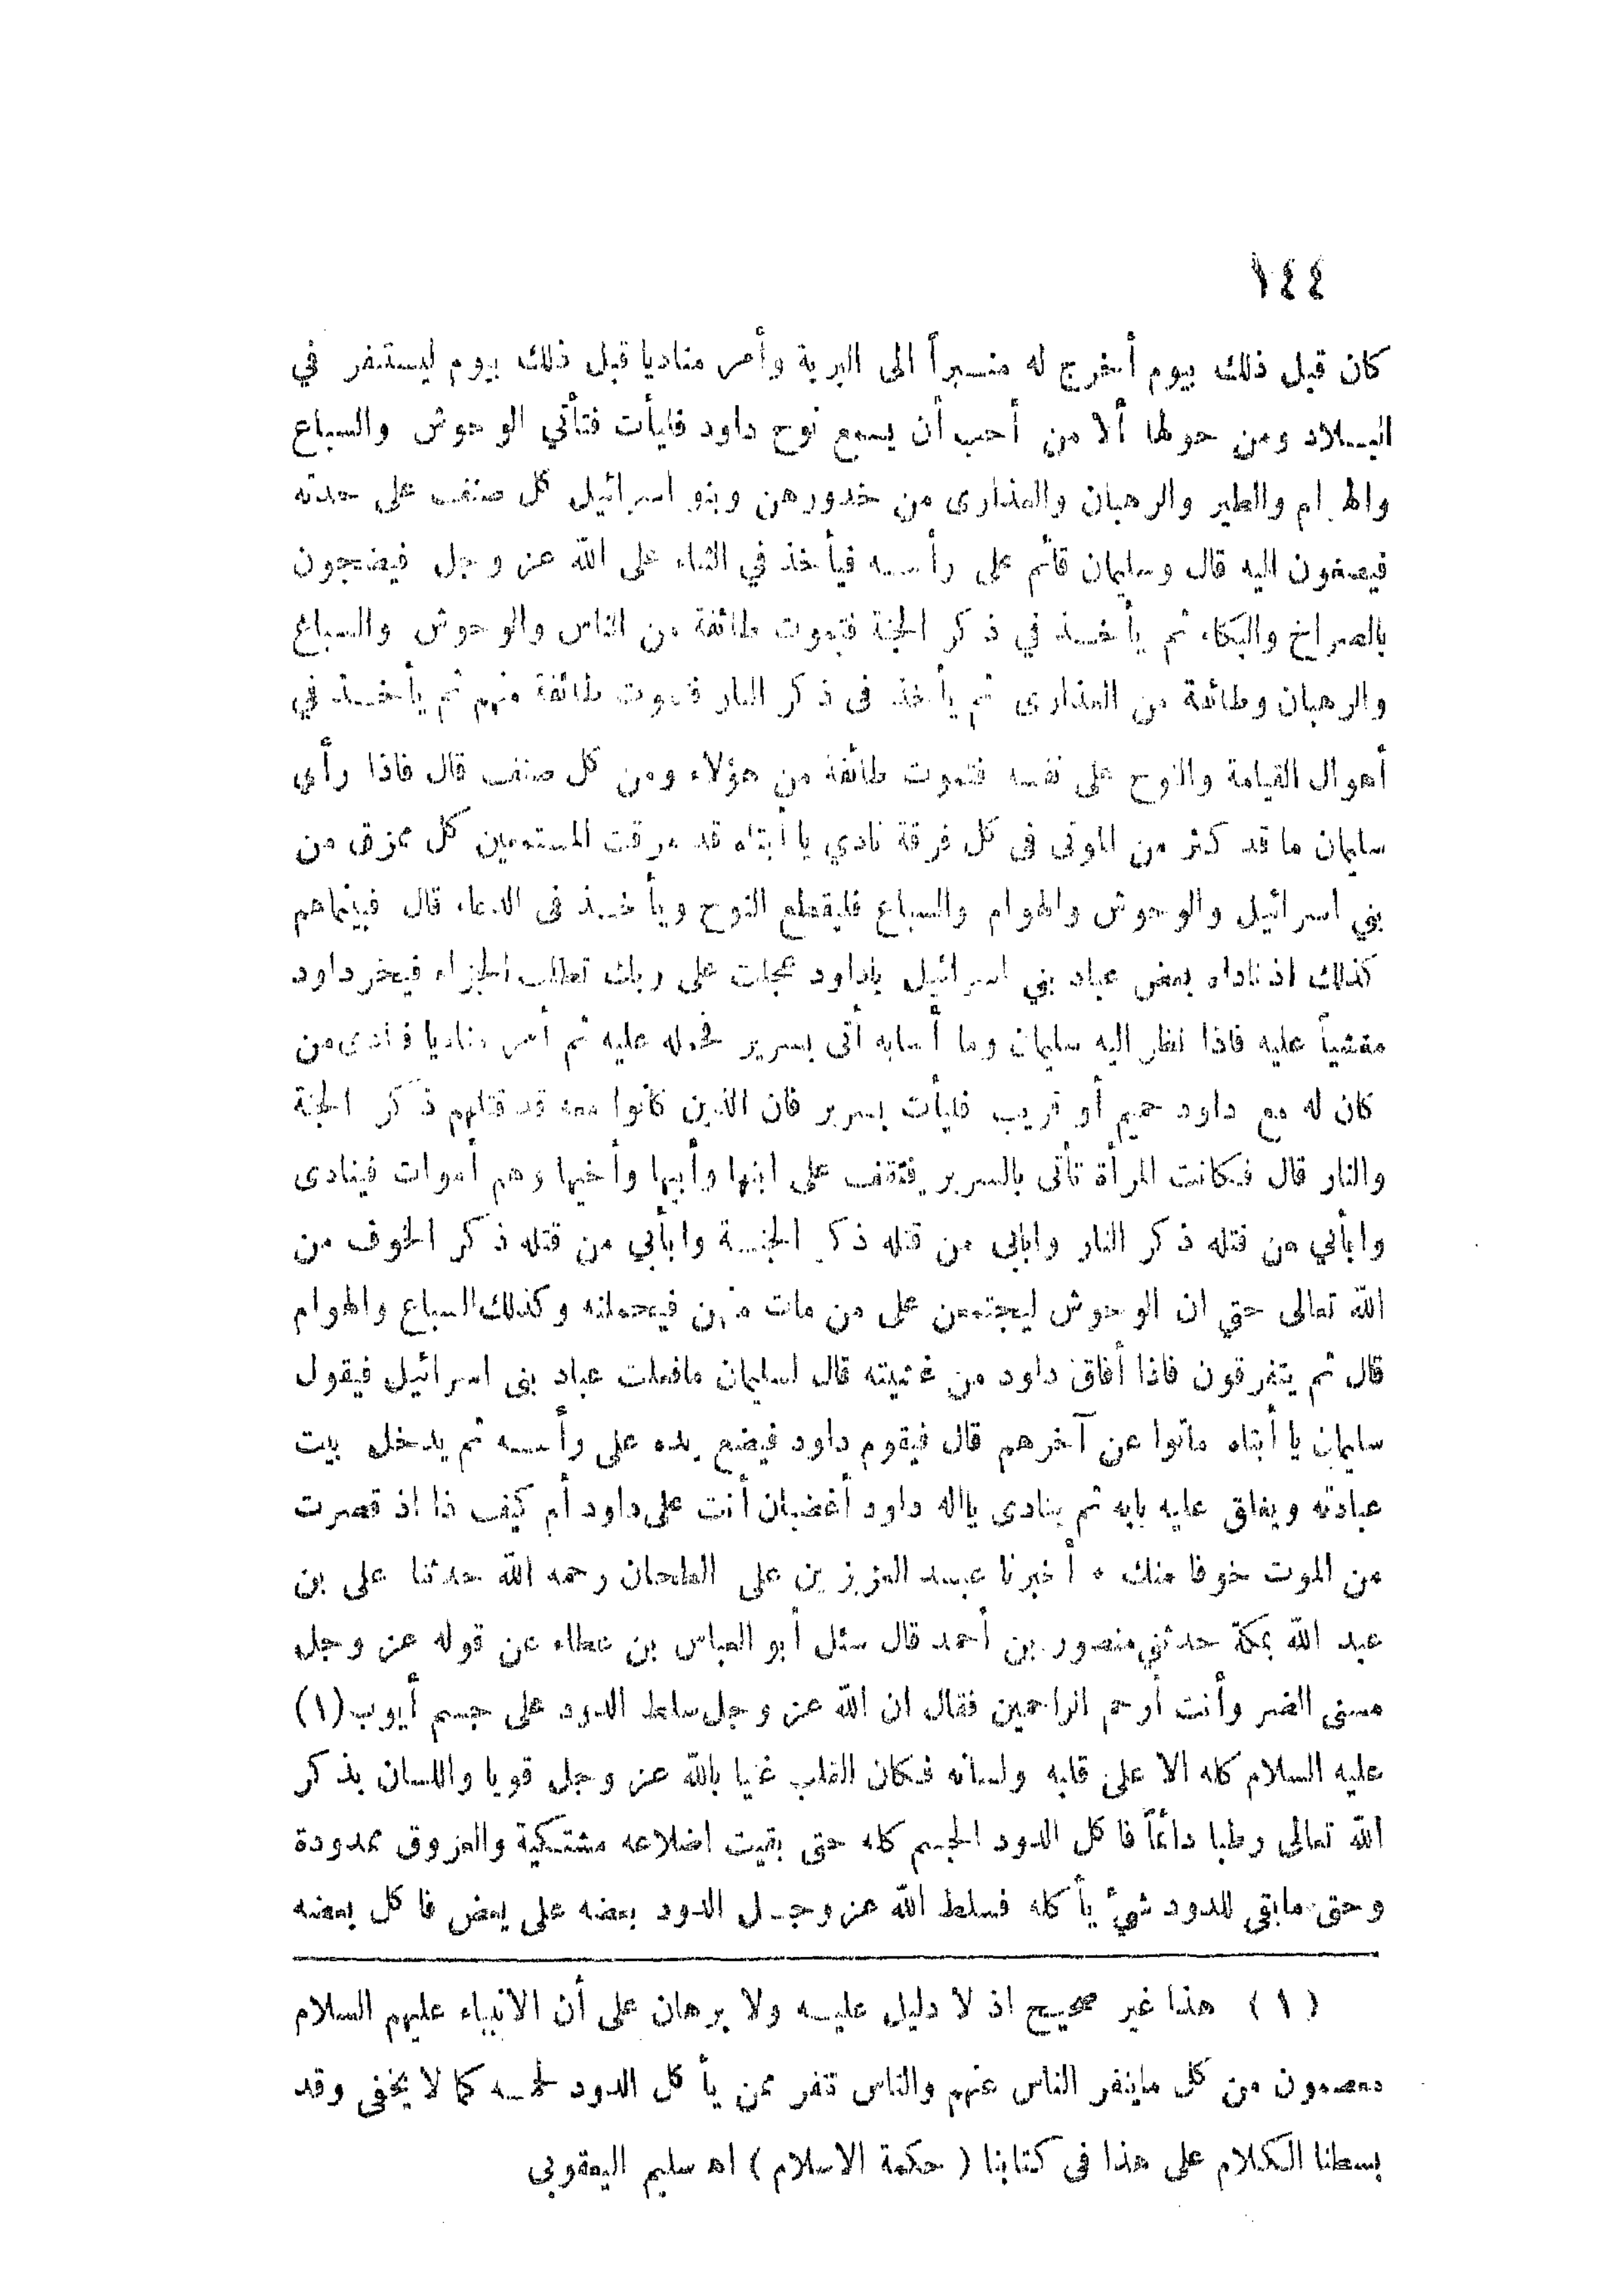 ١٤٤
كان قبل ذلك بيوم أخرج له منبراً الى البرية وأمر مناديا قبل ذلك بيوم ليستنفر في
البلاد ومن حولها ألا من أحب أن يسمع نوح داود فليأت فتأتي الوحوش والسباع
والهوام والطير والرهبان والعذارى من خدورهن وبنو اسرائيل كل صنف على حدته
فيصغون اليه قال وسليمان قائم على رأسه فيأخذ في الثناء على الله عز وجل فيضجون
بالصراخ والبكاء ثم يأخذ في ذكر الجنة فتموت طائفة من الناس والوحوش والسباع
والرهبان وطائفة من العذارى ثم يأخذ فى ذكر النار فتموت طائفة منهم ثم يأخذ في
أهوال القيامة والنوح على نفسه فتموت طائفة من هؤلاء ومن كل صنف قال فاذا رأى
سليمان ما قد كثر من الموتى فى كل فرقة نادي يا أبتاه قد مزقت المستمعين كل ممزق من
بني اسرائيل والوحوش والهوام والسباع فليقطع النوح ويأخذ فى الدعاء قال فبينماهم
كذلك اذ ناداه بعض عباد بني اسرائيل ياداود عجلت على ربك تطلب الجزاء فيخر داود
مغشياً عليه فاذا نظر اليه سليمان وما أصابه أتى بسرير فحمله عليه ثم أمر مناديا فنادى من
كان له مع داود حميم أو قريب فليأت بسرير فان الذين كانوا معه قد قتلهم ذكر الجنة
والنار قال فكانت المرأة تأتى بالسرير فتقف على ابنها وأبيها وأخيها وهم أموات فينادى
وابأبي من قتله ذكر النار وابابى من قتله ذكر الجنة وابأبي من قتله ذكر الخوف من
الله تعالى حتي ان الوحوش ليجتمعن على من مات منهن فيحملنه وكذلك السباع والهوام
قال ثم يتفرقون فاذا أفاق داود من غشيته قال لسليمان مافعلت عباد بنى اسرائيل فيقول
سليمان يا أبتاه ماتوا عن آخرهم قال فيقوم داود فيضع يده على رأسه ثم يدخل بيت
عبادته ويغلق عليه بابه ثم ينادى يااله داود أغضبان أنت على داود أم كيف ذا اذ قصرت
من الموت خوفا منك ٠ أخبرنا عبد العزيز بن على الطحان رحمه الله حدثنا على بن
عبد الله بمكة حدثني منصور بن أحمد قال سئل أبو العباس بن عطاء عن قوله عز وجل
مسنى الضر وأنت أرحم الراحمين فقال ان الله عز وجل سلط الدود على جسم أيوب (١)
عليه السلام كله الا على قلبه ولسانه فكان القلب غنيا بالله عز وجل قويا واللسان بذكر
الله تعالى رطبا دائماً فاكل الدود الجسم كله حتى بقيت اضلاعه مشتبكية والعروق ممدودة
وحتى مابقى للدود شيء يأكله فسلط الله عز وجل الدود بعضه على بعض فاكل بعضه
( ١ ) هذا غير صحيح اذ لا دليل عليه ولا برهان على أن الانبياء عليهم السلام
معصومون من كل ماينفر الناس عنهم والناس تنفر ممن يأكل الدود لحمه كما لا يخفى وقد
بسطنا الكلام على هذا فى كتابنا ( حكمة الاسلام ) اه سليم اليعقوبى